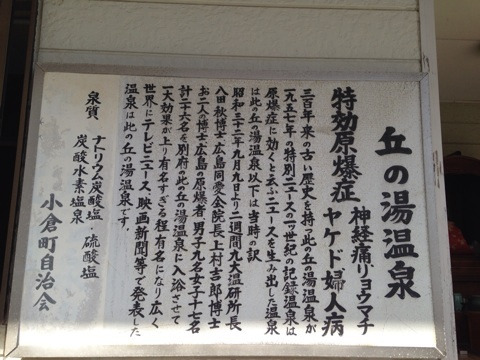 丘の湯温泉
特効原爆症 神経痛リョウマチ
ヤケド婦人病
三百年来の古い歴史を持つ此の丘の湯温泉が
一九五七年の特別ニュースの一ツ世紀の記録温泉は
原爆症に効くと云ふニュースを生み出した温泉
は此の丘の湯温泉以下は当時の訳
昭和三十二年九月九日より二週間九大温研所長
八田秋博士広島同愛会院長上村吉郎博士
お二人の博士広島の原爆者男子九名女子十七名
計二十六名を別府の此の丘の湯温泉に入浴させて
一大効果が上り有名すぎる程有名になり広く
世界にテレビニュース、映画、新聞等で発表した
温泉は此の丘の湯温泉です.
泉質 ナトリウム炭酸塩・硫酸塩
炭酸水素塩泉
小倉町自治会